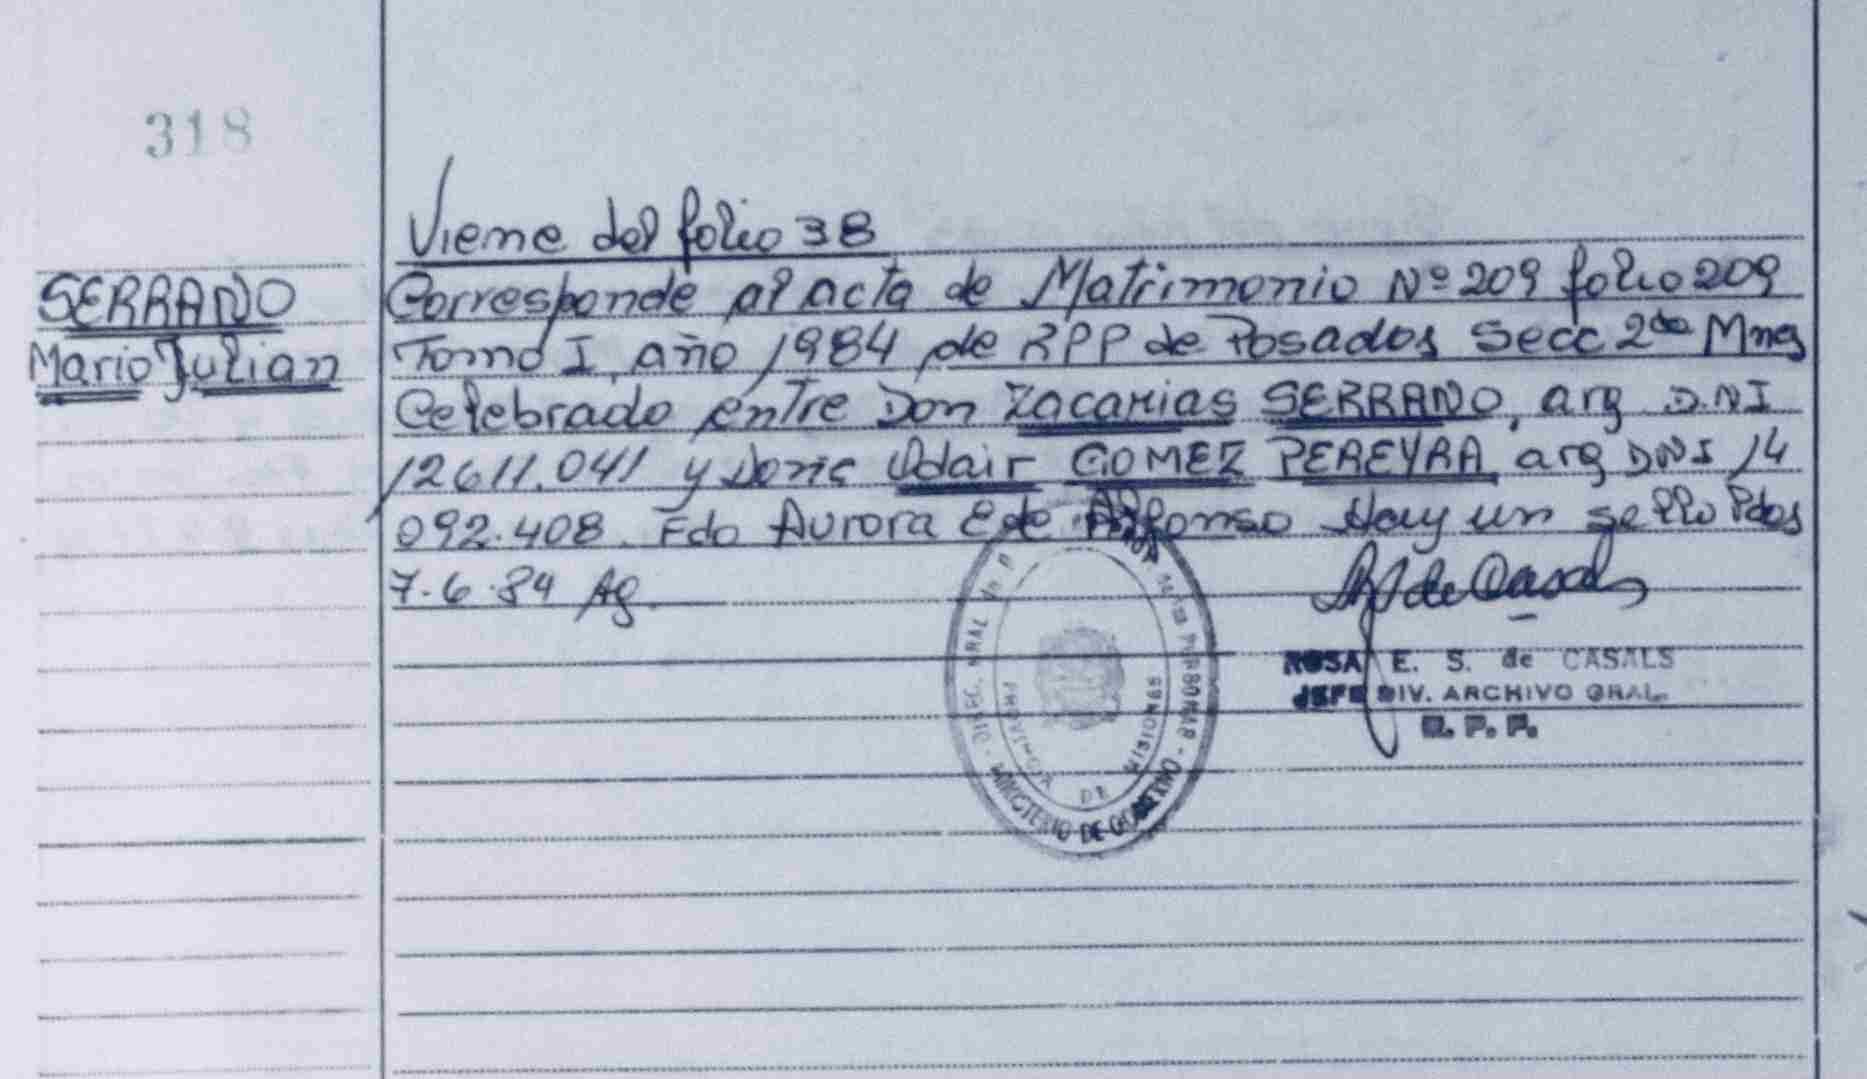 318
Viene del folio 38
SERRANO
Mario Julian
Corresponde al acta de Matrimonio Nº 209 folio 209
Tomo I, año 1984, de RPP de Posadas Secc 2da Mnes
Celebrado entre Don Zacarias SERRANO, arg D.N.I
12611.041 y Doris Odair GOMEZ PEREYRA, arg DNI 14
092.408. Fdo Aurora E de Alfonso Hay un sello Pdas
7.6.84 Ag.
ROSA E. S. de CASALS
JEFE DIV. ARCHIVO GRAL.
R. P. P.
PROVINCIA DE MISIONES
MINISTERIO DE GOBIERNO